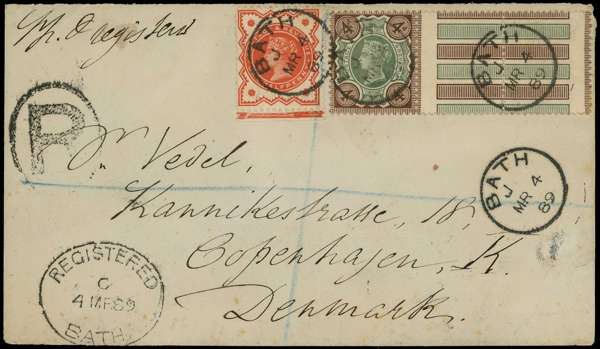 BATH
J
MR 4
89
4
4
4
4
BATH
J
MR 4
89
R
Dr. Vedel,
Kannikestrasse, 18,
Copenhagen, K.
Denmark.
BATH
J
MR 4
89
REGISTERED
C
4 MR 89
BATH